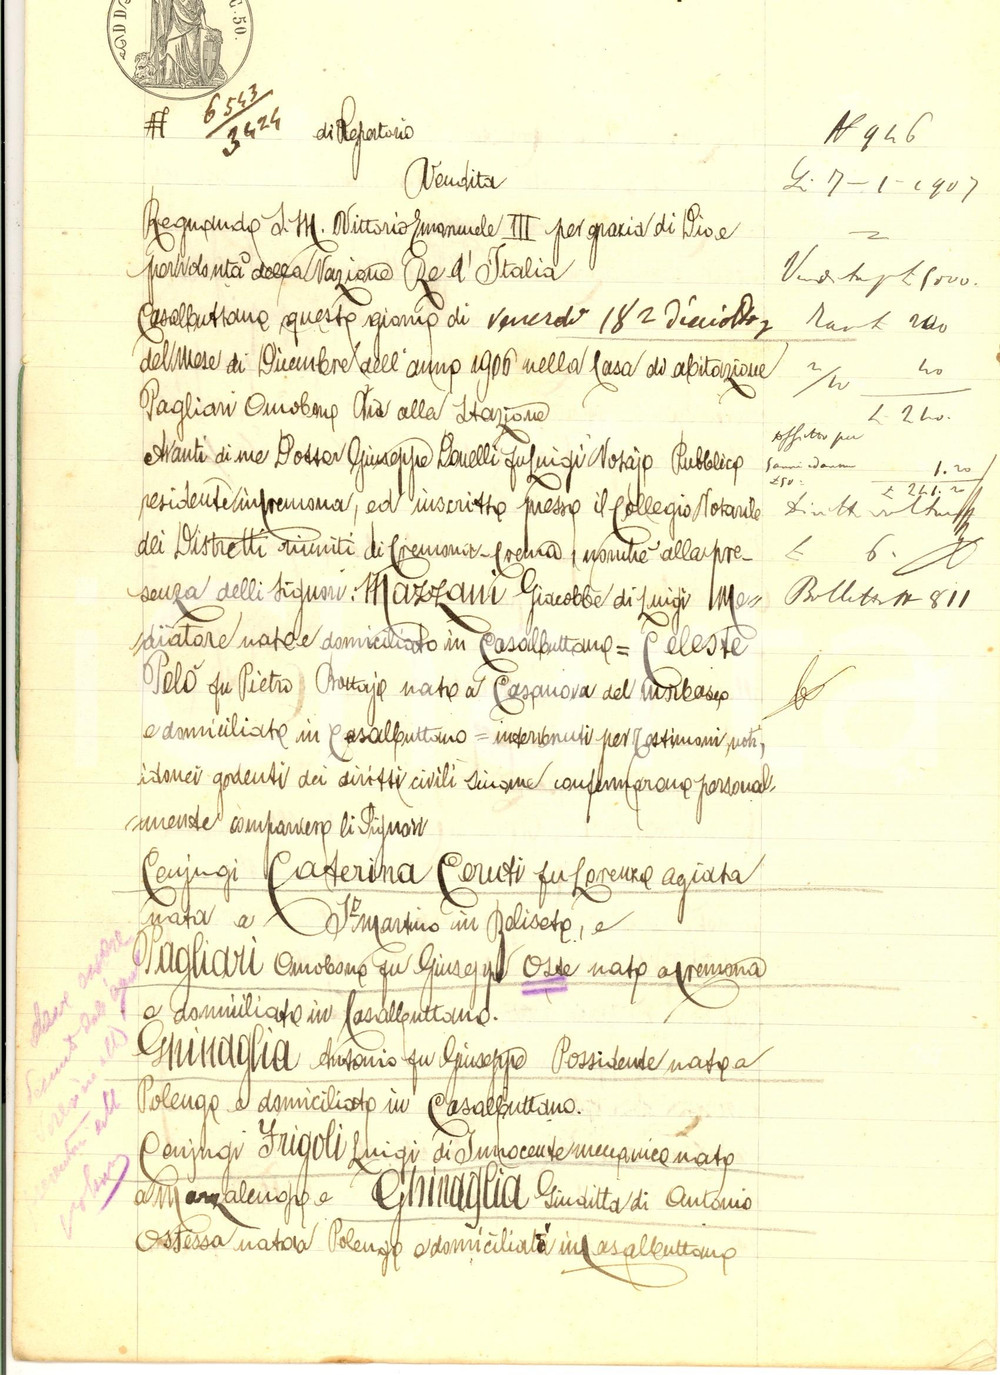 C. 50.
N 6543
3424 di Repertorio
Vendita
Regnando S. M. Vittorio Emanuele III per grazia di Dio e
per volontà della Nazione Re d' Italia
Casalbuttano questo giorno di Venerdì 18
del Mese di Dicembre dell' anno 1906 nella Casa di abitazione
Pagliari Omobono Via alla Stazione
Avanti di me Dottor Giuseppe fu Luigi Notajo Pubblico
residente in Cremona, ed inscritto presso il Collegio Notarile
dei Distretti riuniti di Cremona-Crema, nonchè alla pre-
senza delli Signori: Mazzani Giacobbe di Luigi Me=
diatore nato e domiciliato in Casalbuttano = Celeste
Pelò fu Pietro Bottajo nato a Casanova del Morbasco
e domiciliato in Casalbuttano = intervenuti per Testimoni noti,
idonei godenti dei diritti civili siccome confermarono personal-
mente comparvero li Signori
Conjugi Caterina Ceruti fu Lorenzo agiata
nata a S. Martino in Beliseto, e
Pagliari Omobono fu Giuseppe Oste nato a Cremona
e domiciliato in Casalbuttano.
Ghinaglia Antonio fu Giuseppe Possidente nato a
Polengo e domiciliato in Casalbuttano.
Conjugi Frigoli Luigi di Innocente meccanico nato
a Marzalengo e Ghinaglia Giuditta di Antonio
Ostessa nata a Polengo e domiciliata in Casalbuttano
N 946
Li 7-1-1907
5000.
200
40
£ 240.
Affitto per
1.20
£ 241.20
£ 6.
Bolletta N 811